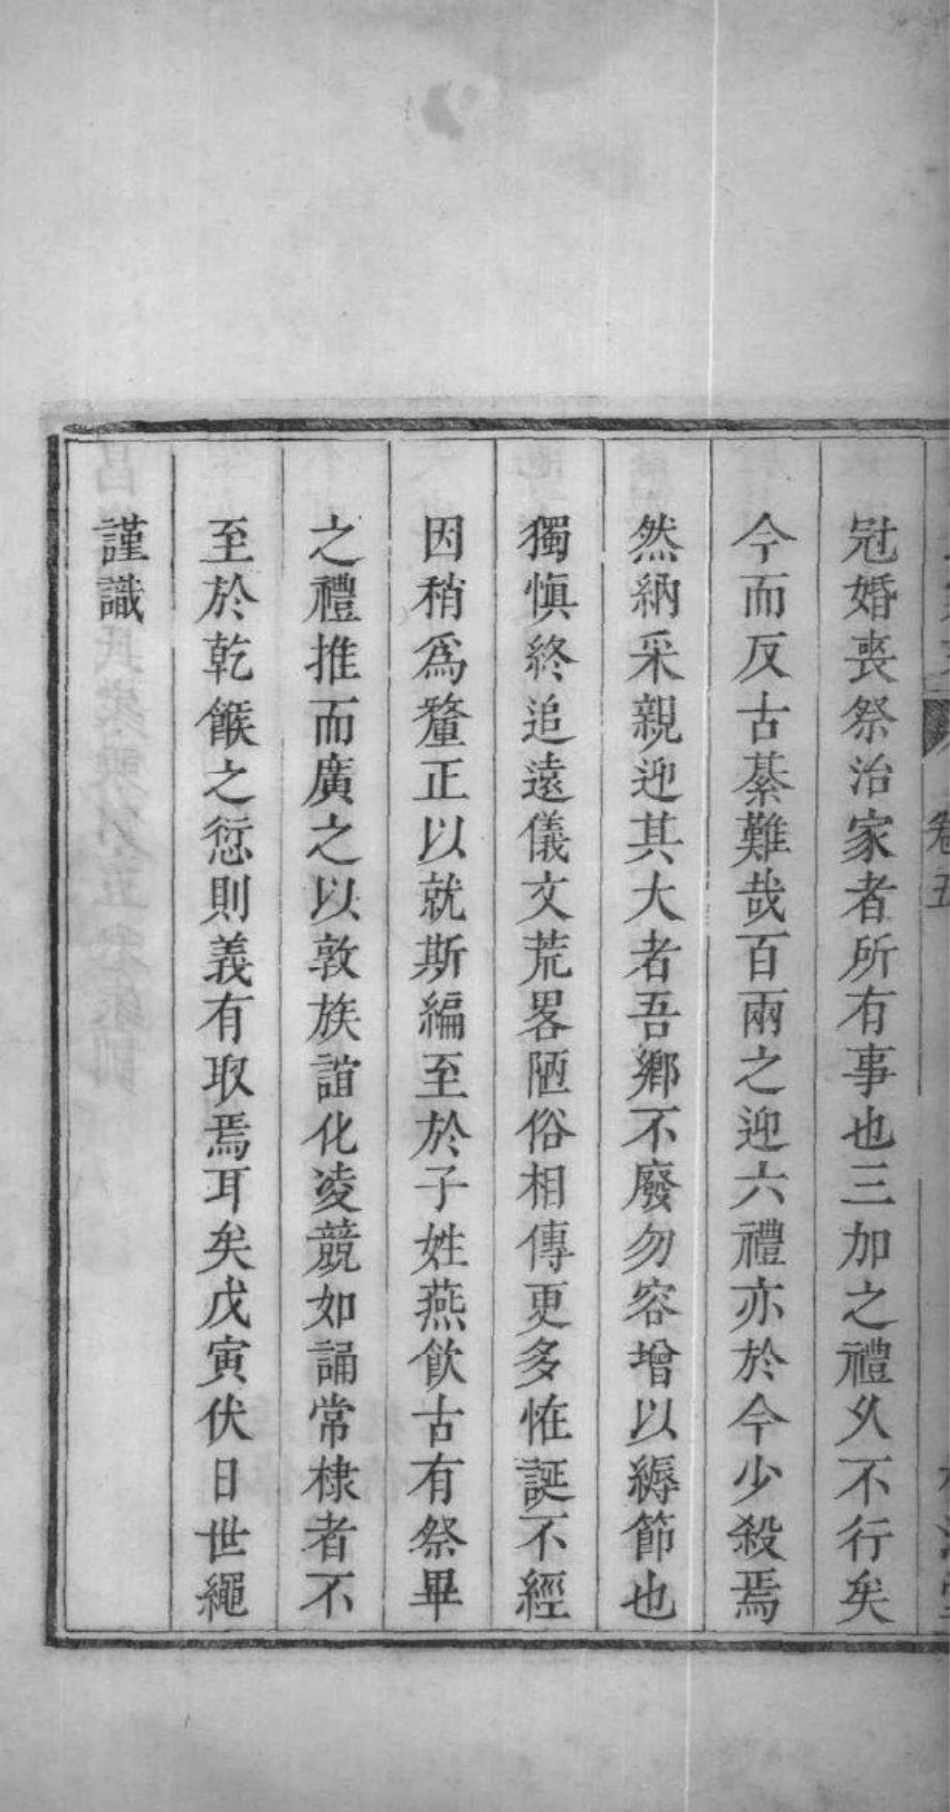 卷五
冠婚喪祭治家者所有事也三加之禮久不行矣
今而反古綦難哉百兩之迎六禮亦於今少殺焉
然納采親迎其大者吾鄉不廢勿容增以縟節也
獨愼終追遠儀文荒畧陋俗相傳更多恠誕不經
因稍爲釐正以就斯編至於子姓燕飮古有祭畢
之禮推而廣之以敦族誼化凌競如誦常棣者不
至於乾餱之愆則義有取焉耳矣戊寅伏日世繩
謹識